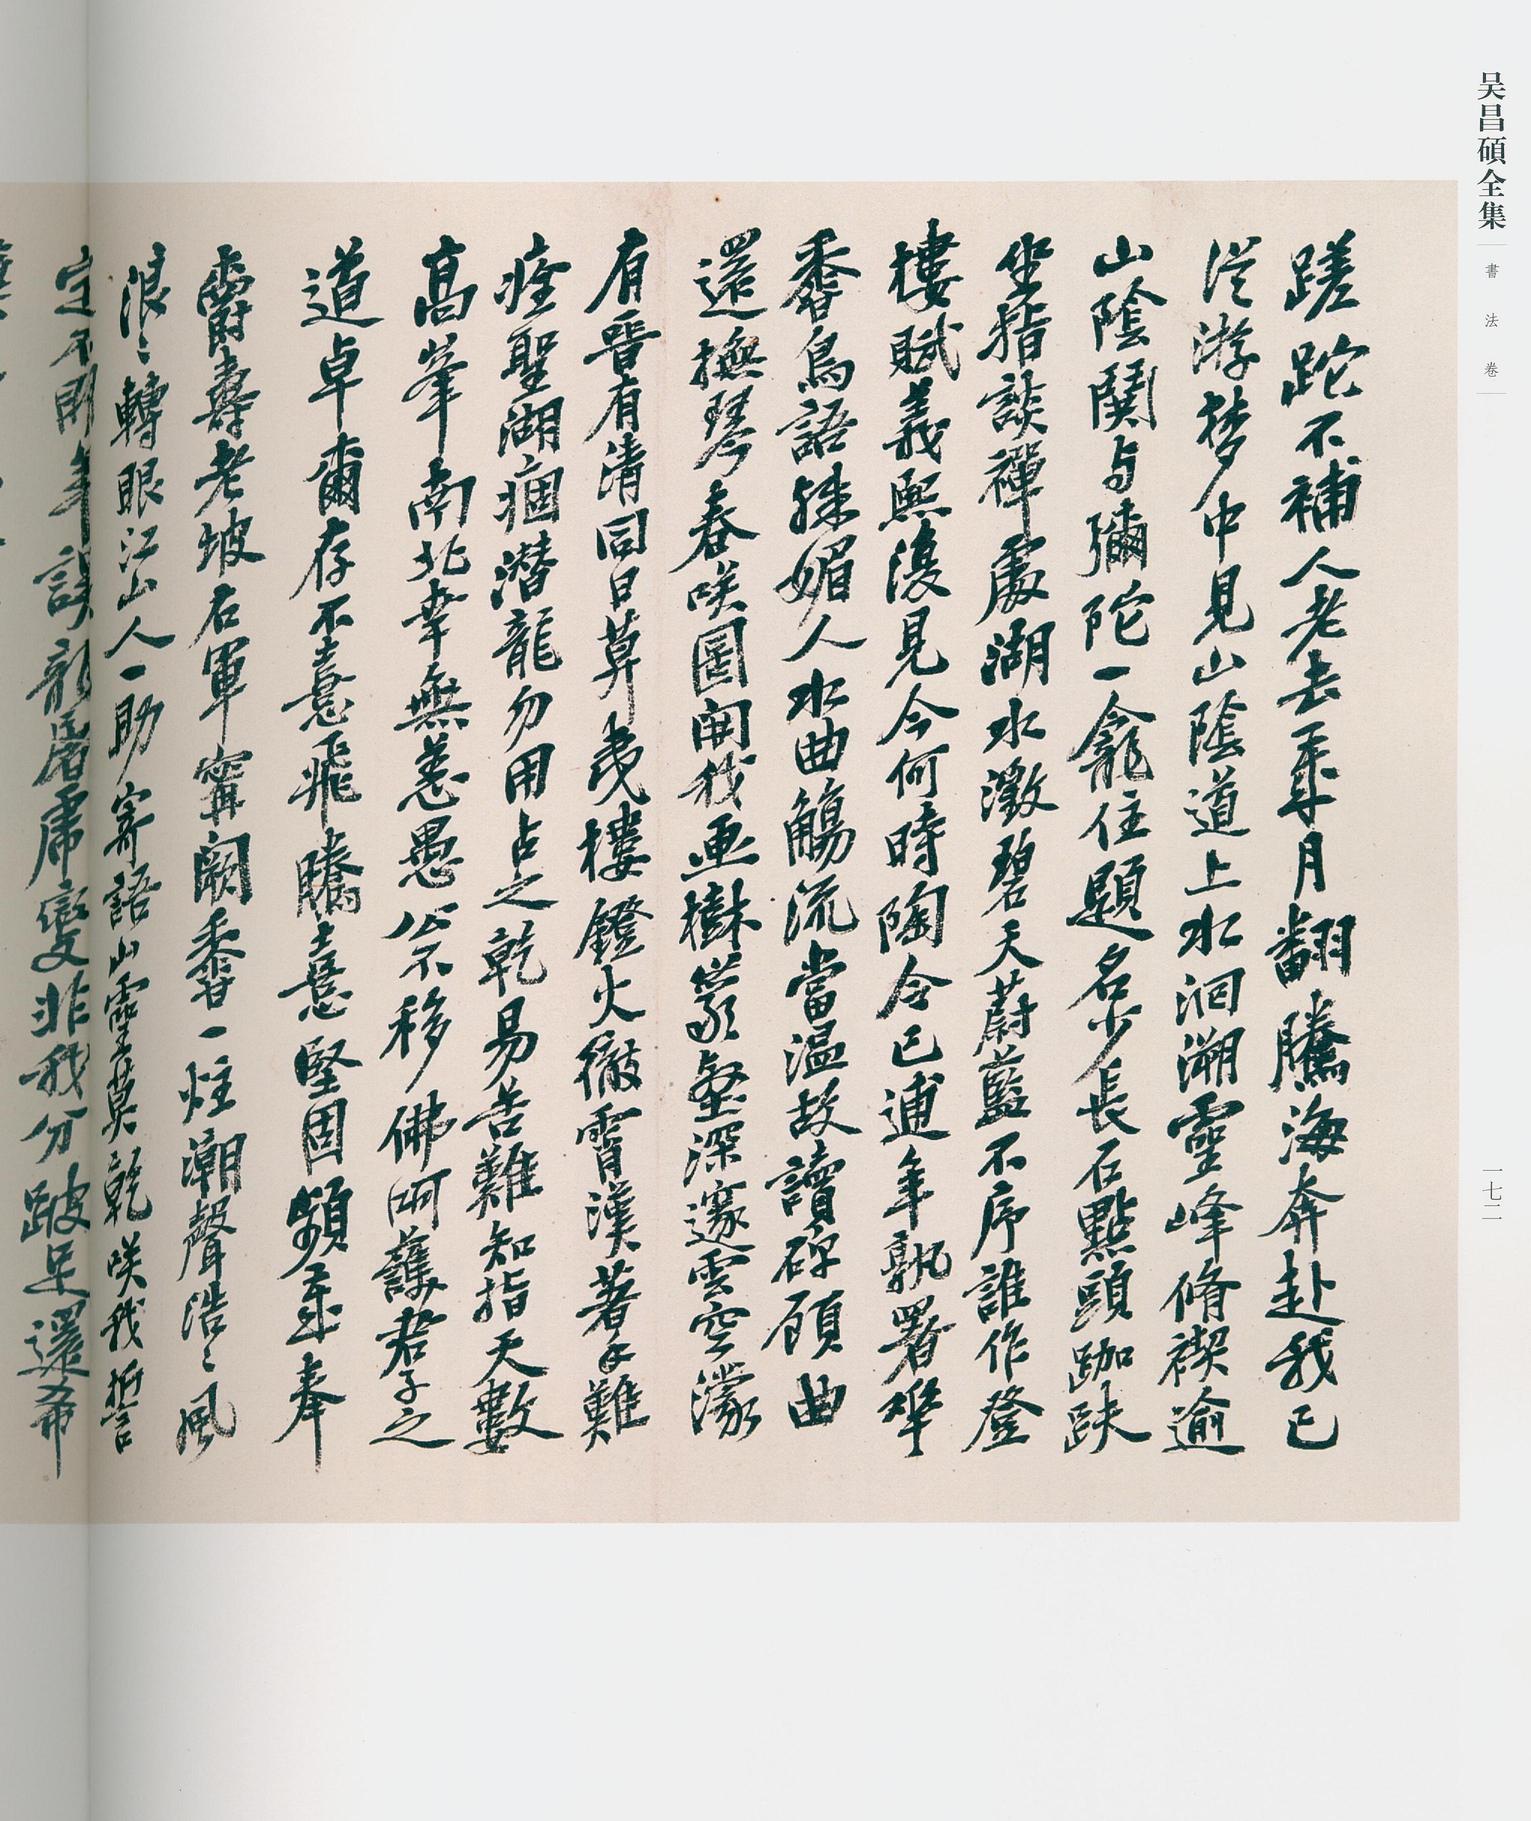 吴昌碩全集
書法卷
一七二
蹉跎不補人老去年月翻騰海奔赴我已
從游梦中見山陰道上水洄溯靈峰脩禊逾
山陰鬨与彌陀一龕住題名少長石點頭跏趺
坐指談禪處湖水激碧天蔚藍不序誰作登
樓賦義熙復見今何時陶令已逋年孰署
黍鳥語殊媚人水曲觴流當温故讀碑顧曲
還撫琴春咲圖開我画樹叢壑深邃雲空濛
有晋有清同日算夷樓鐙火徹霄漢著手難
痊聖湖痼潜龍勿用占之乾易若難知指天數
高峯南北幸無恙愚公不移佛呵護君子之
道卓爾存不意飛騰意堅固頻年奉
爵壽老坡右軍甯闕黍一炷潮聲浩〻風
浪〻轉眼江山人一助寄語山靈莫乾咲我誓
定不開年誤龍屠虎變非我分跛足還希